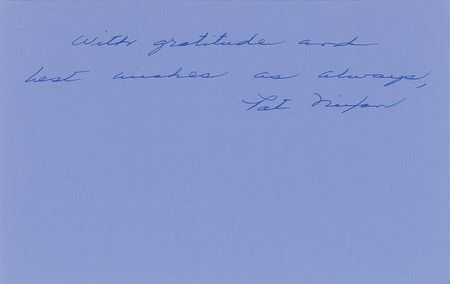 With gratitude and
best wishes as always,
Pat Nixon